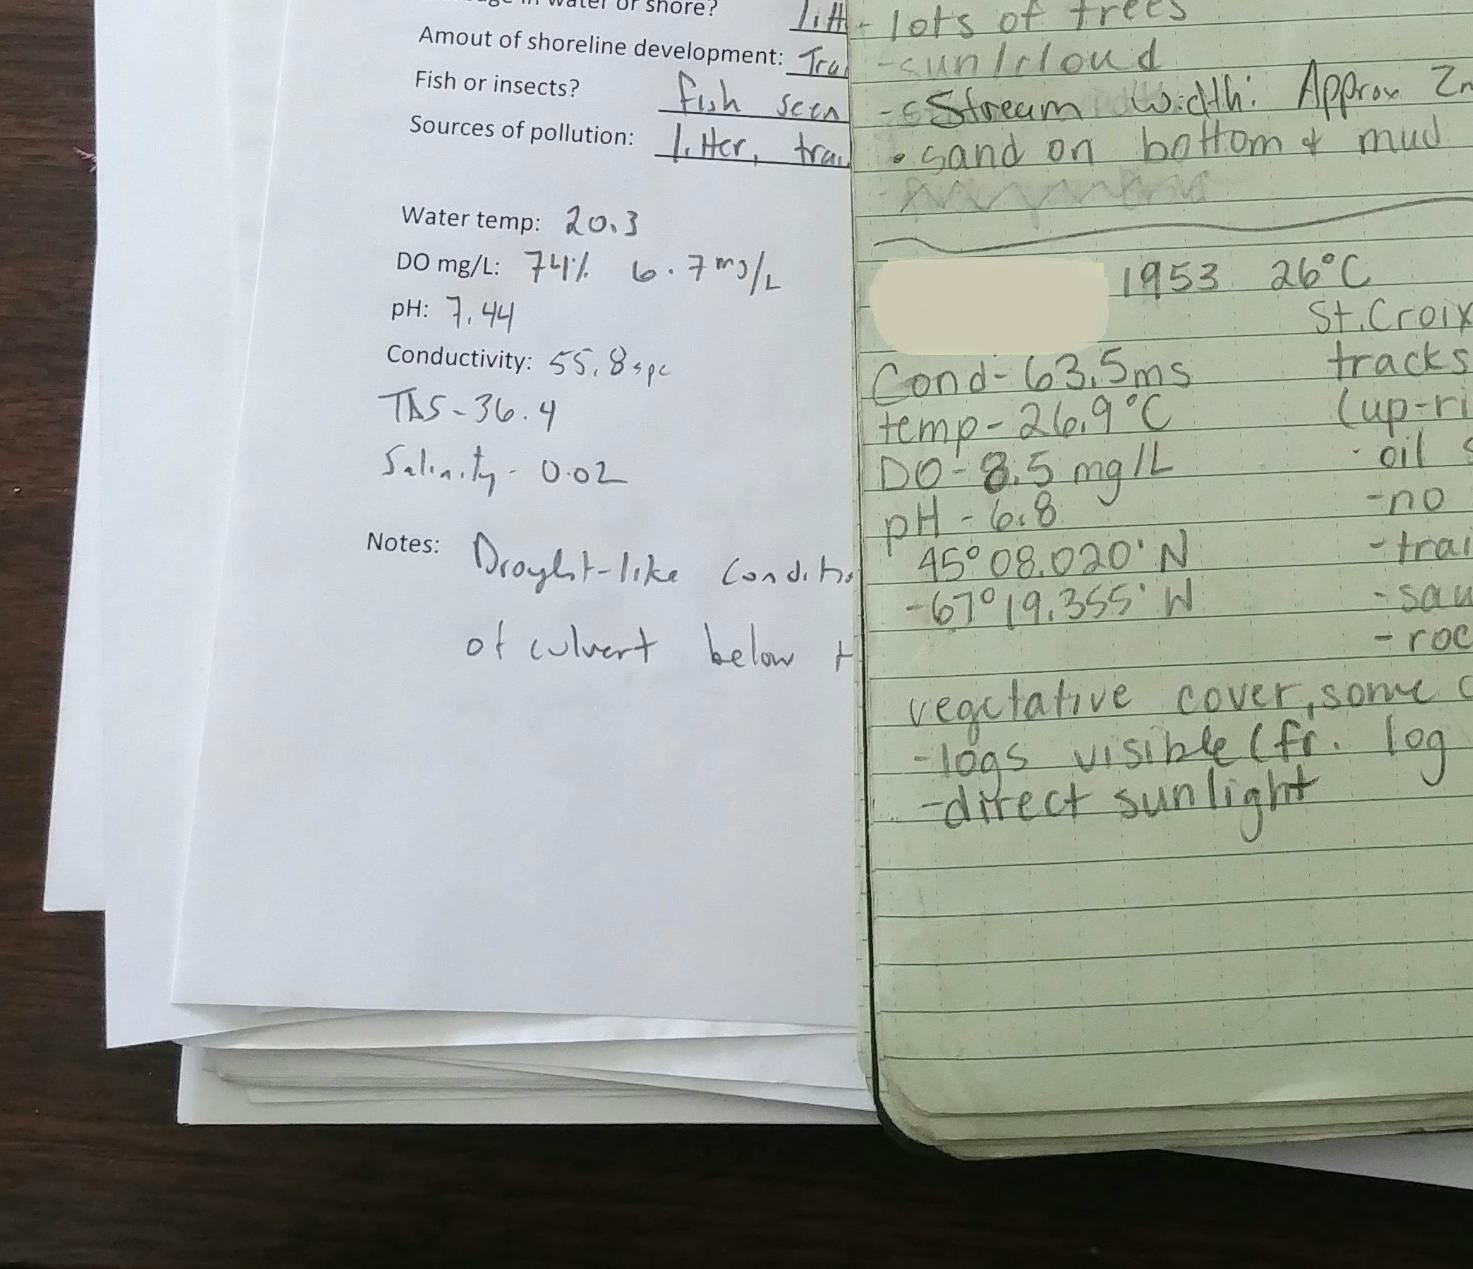 water or shore?
Amout of shoreline development:
Fish or insects? fish seen
Sources of pollution: litter,
Water temp: 20.3
DO mg/L: 74% 6.7 mg/L
pH: 7.44
Conductivity: 55.8 spc
TDS - 36.4
Salinity - 0.02
Notes: Drought-like
of culvert below
- lots of trees
- sun/cloud
- Stream width: Approx
• sand on bottom & mud
1953 26°C
St. Croix
Cond - 63.5 ms tracks
temp - 26.9°C (up-ri
DO - 8.5 mg/L · oil
pH - 6.8 - no
45° 08.020' N - trai
-67° 19.355' W
- roc
vegetative cover, some
- logs visible (fr. log
- direct sunlight